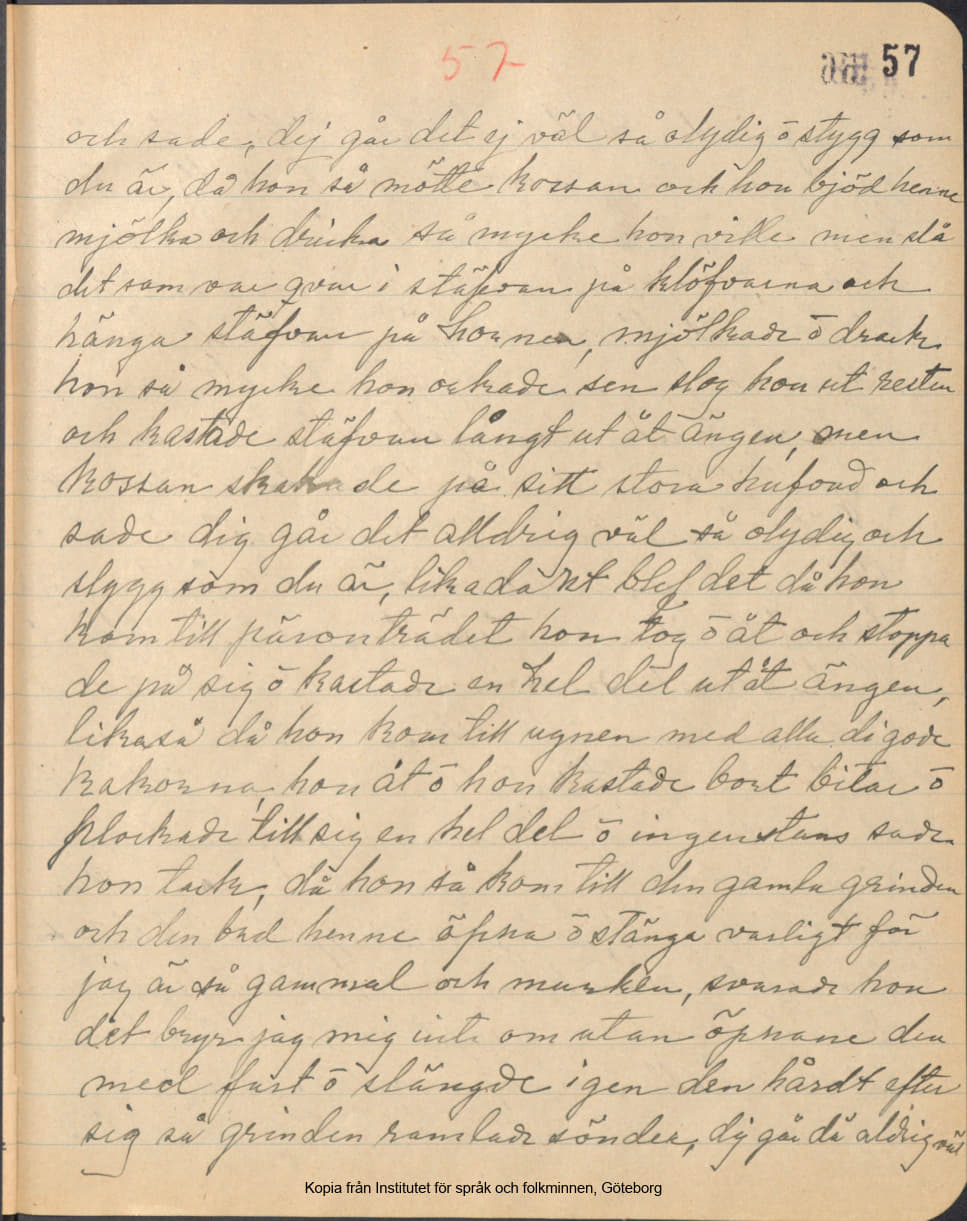 57
57
och sade, dej går det ej väl så olydig o stygg som
du är, då hon så mötte kossan och hon bjöd henne
mjölka och dricka så mycke hon ville men slå
det som var qvar i stäfvan på klöfvarna och
hänga stäfvan på hornen, mjölkade o drack
hon så mycke hon orkade sen slog hon ut resten
och kastade stäfvan långt ut åt ängen, men
kossan skakade på sitt stora hufvud och
sade dig går det alldrig väl så olydig och
stygg som du är, likadant blef det då hon
kom till päronträdet hon tog o åt och stoppa
de på sig o kastade en hel del utåt ängen,
likaså då hon kom till ugnen med alla di goda
kakorna, hon åt o hon kastade bort bitar o
plockade till sig en hel del o ingenstans sade
hon tack, då hon så kom till den gamla grinden
och den bad henne öpna o stänga varligt för
jag är så gammal och murken, svarade hon
det bryr jag mig inte om utan öpnane den
med fart o slängde igen den hårdt efter
sig så grinden ramlade sönder, dig går då aldrig väl
Kopia från Institutet för språk och folkminnen, Göteborg